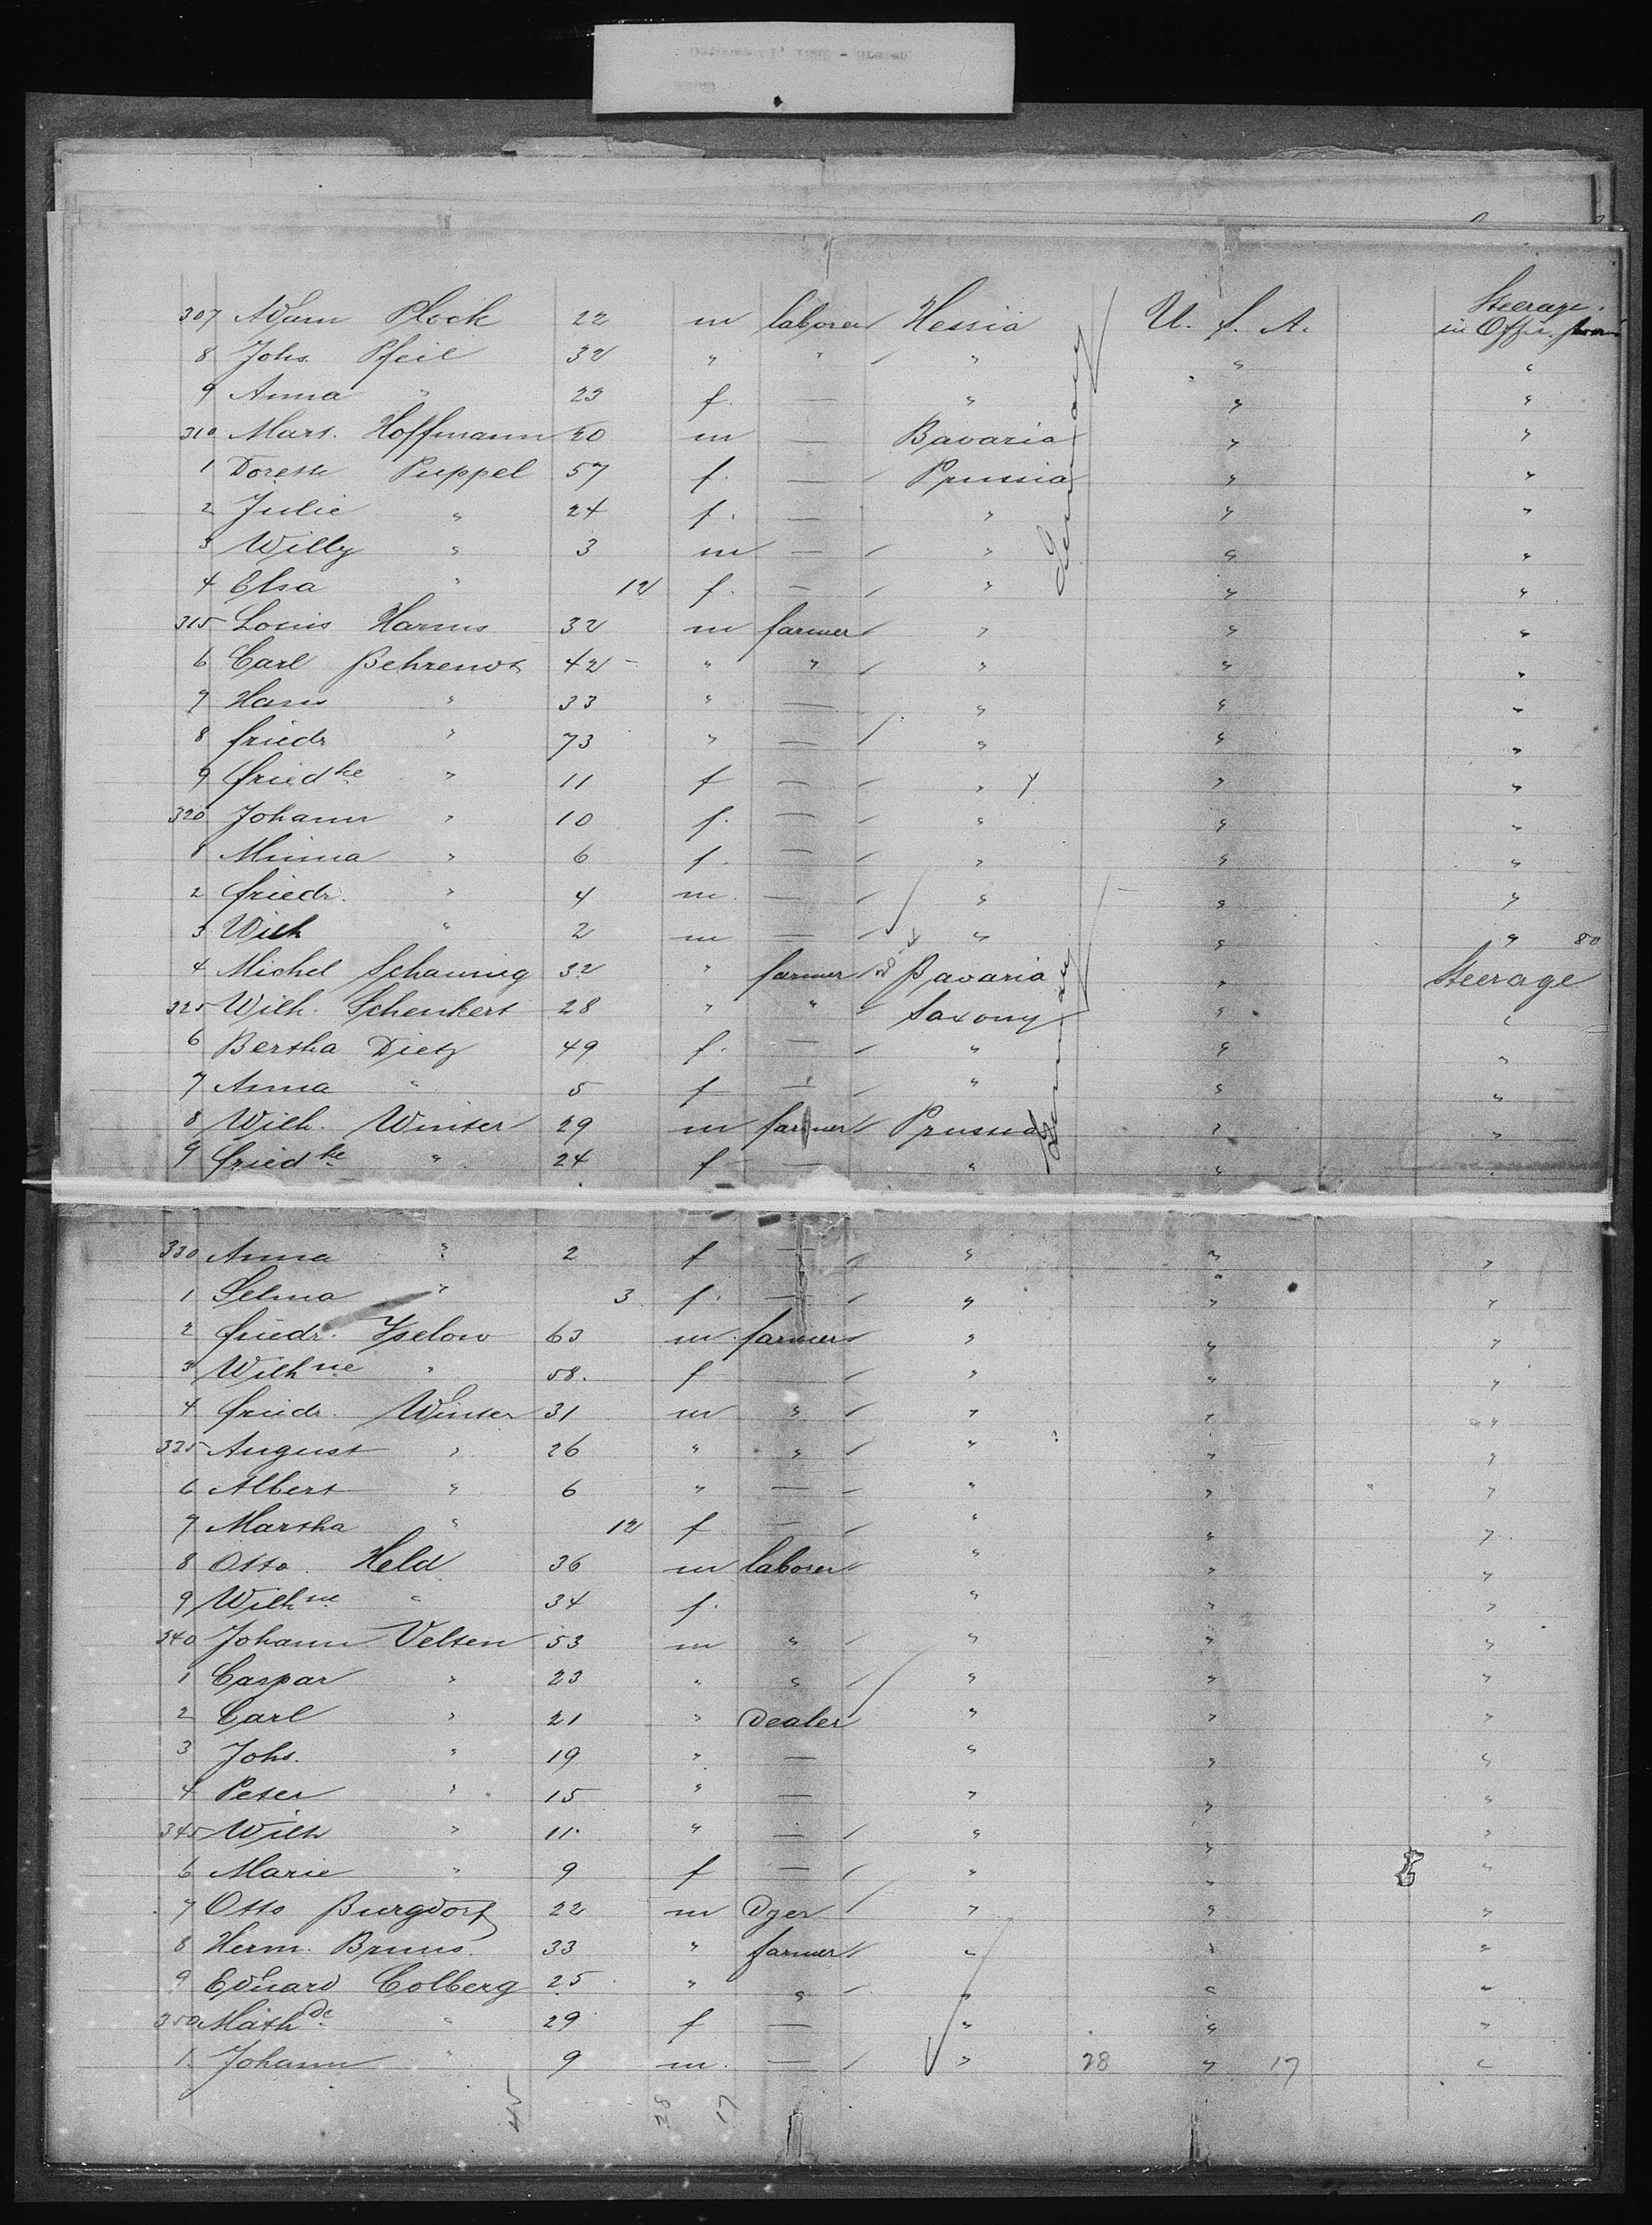 307 Adam Plock 22 m laborer Hessia U. S. A. Steerage in Offic.
8 Johs. Pfeil 32 " " " " "
9 Anna " 23 f. — " " "
310 Mart. Hoffmann 20 m — Bavaria " "
1 Dorette Puppel 57 f. — Prussia " "
2 Julie " 24 f. — " " "
3 Willy " 3 m — " " "
4 Elsa " 12 f. — " " "
315 Louis Harms 32 m farmer " " "
6 Carl Behrendt 42 " " " " "
7 Hans " 33 " — " " "
8 friedr " 73 " — " " "
9 friedke " 11 f — " " "
320 Johann " 10 f. — " " "
1 Minna " 6 f. — " " "
2 friedr. " 4 m. — " " "
3 Wilh " 2 m — " " " 80
4 Michel Schaunig 32 " farmer Bavaria " Steerage
325 Wilh. Schenkert 28 " " Saxony " "
6 Bertha Dietz 49 f. — " " "
7 Anna " 5 f — " " "
8 Wilh. Winter 29 m farmer Prussia " "
9 friedke " 24 f — " " "
Germany
Germany
330 Anna " 2 f — " " "
1 Selma " 3 f. — " " "
2 friedr. Zselow 63 m. farmer " " "
3 Wilhne " 58. f — " " "
4 friedr. Winter 31 m " " " "
335 August " 26 " " " " "
6 Albert " 6 " — " " "
7 Martha " 12 f — " " "
8 Otto Held 36 m laborer " " "
9 Wilhne " 34 f. " " "
340 Johann Velten 53 m " " " "
1 Caspar " 23 " " " " "
2 Carl " 21 " Dealer " " "
3 Johs. " 19 " — " " "
4 Peter " 15 " — " " "
345 Wilh " 11 " — " " "
6 Marie " 9 f — " " "
7 Otto Burgdorf 22 m Dyer " " "
8 Herm. Bruns. 33 " farmer " " "
9 Eduard Colberg 25 " " " " "
350 Mathde " 29 f — " " "
1. Johann " 9 m. — " 28 " 17 "
45 28 17